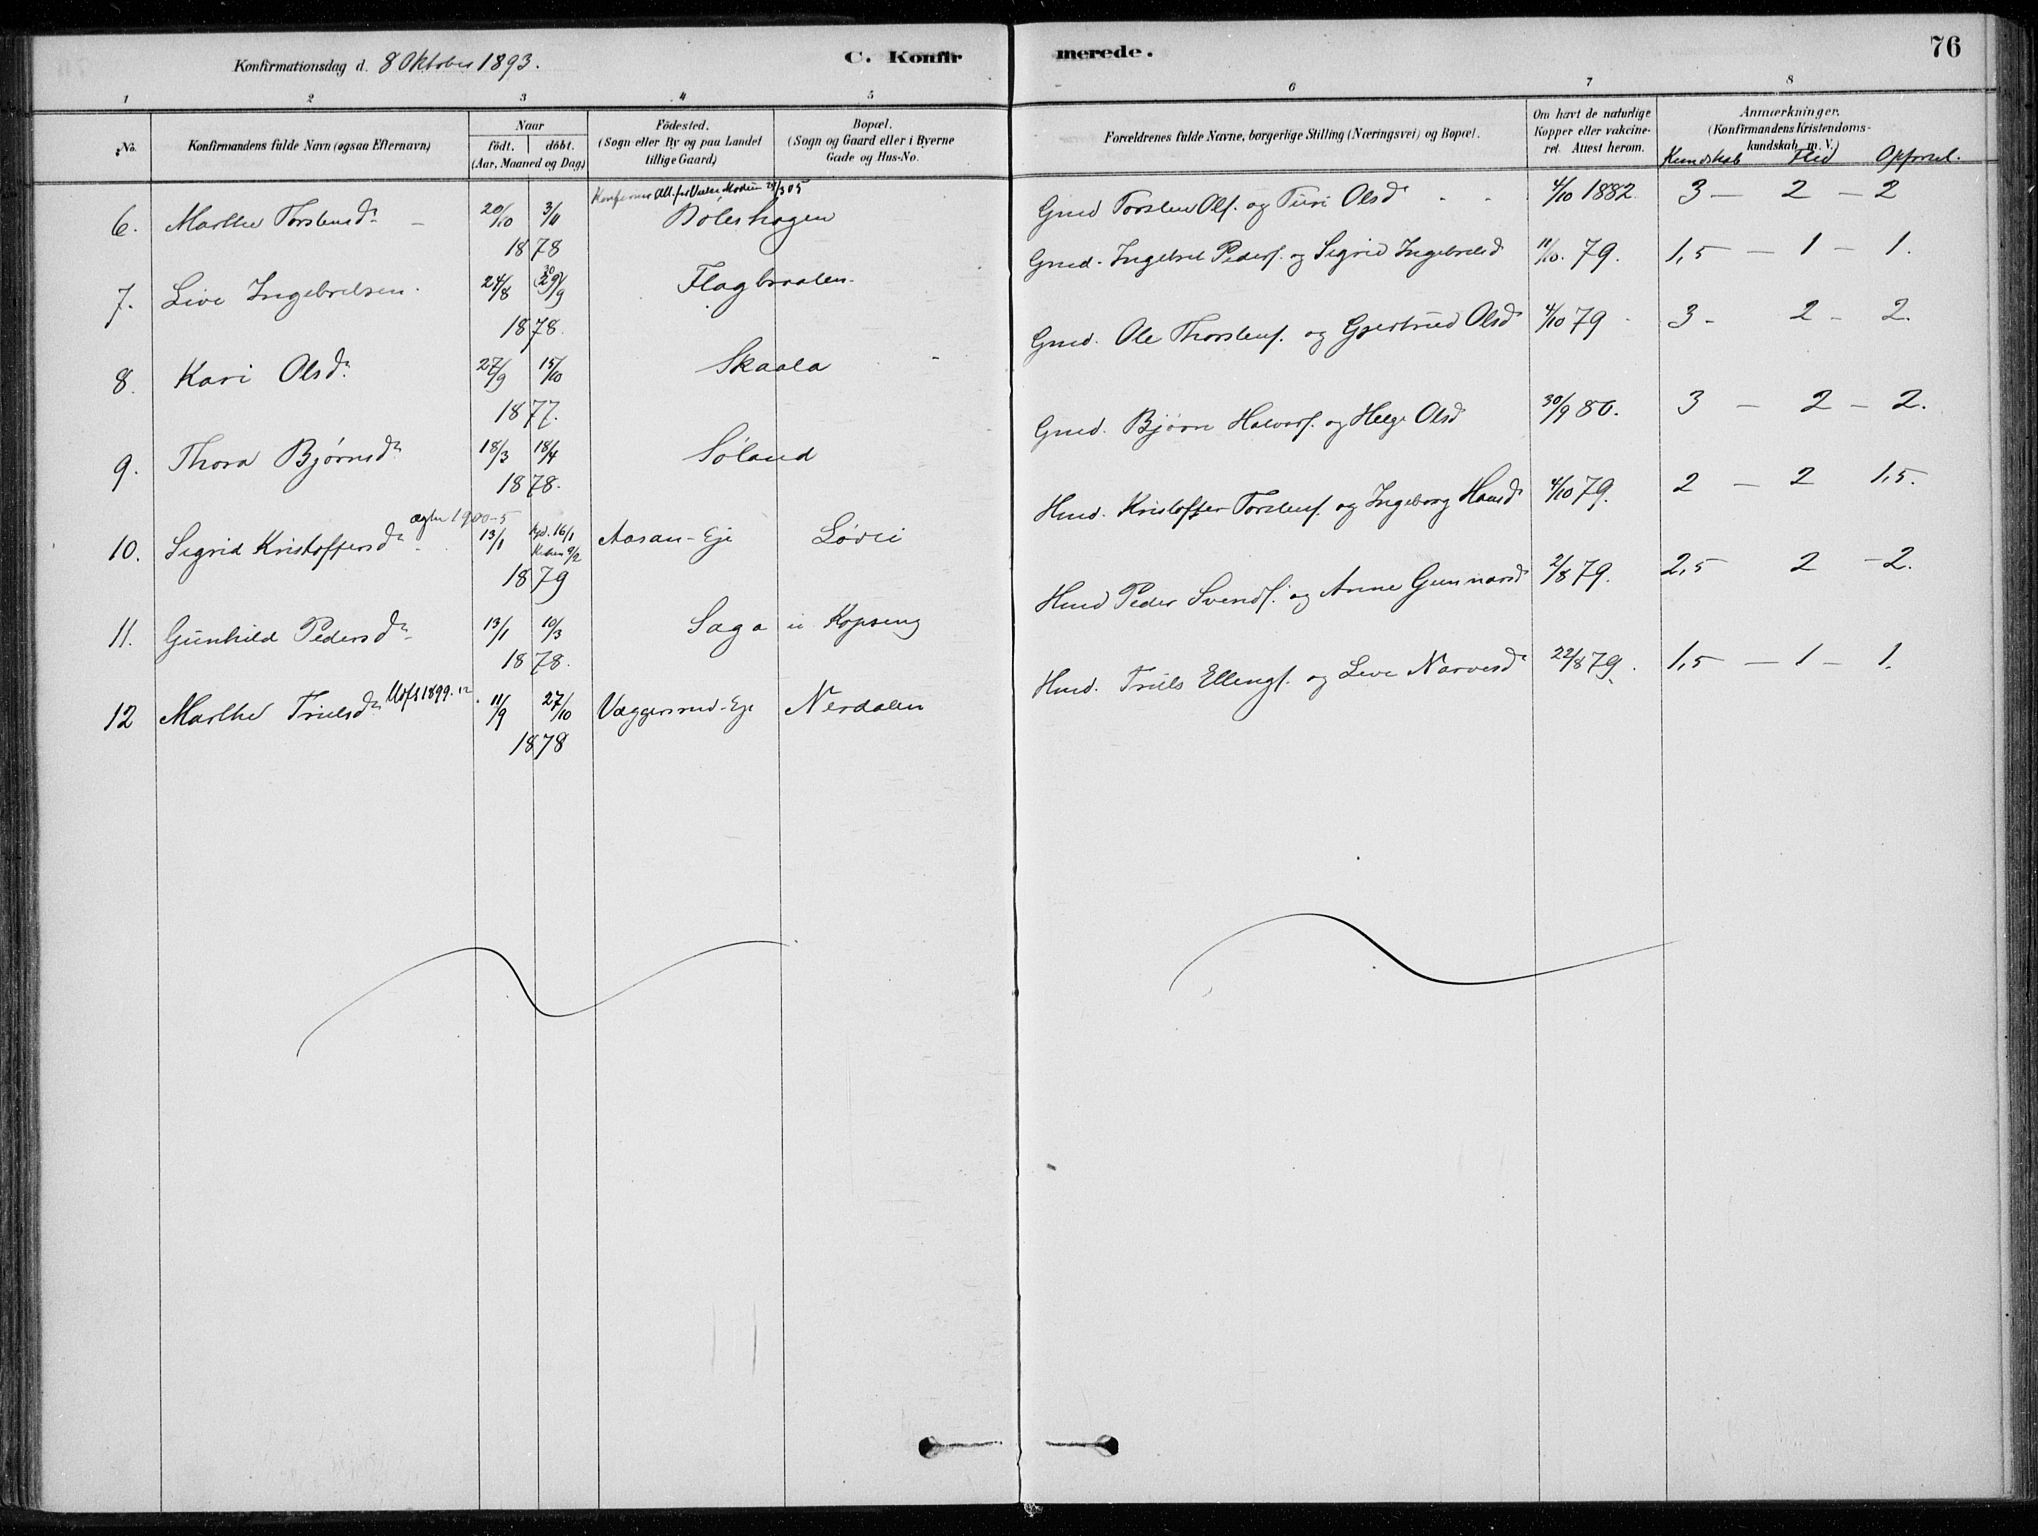 Konfirmationsdag d. 8 Oktober 1893.
C. Konfirmerede.
76
1 2 3 4 5 6 7 8
No.
Konfirmandens fulde Navn (ogsaa Efternavn)
Naar
födt. döbt.
(Aar, Maaned og Dag)
Födested.
(Sogn eller By og paa Landet
tillige Gaard)
Bopæl.
(Sogn og Gaard eller i Byerne
Gade og Hus-No.
Forældrenes fulde Navne, borgerlige Stilling (Næringsvei) og Bopæl.
Om havt de naturlige
Kopper eller vakcine-
ret. Attest herom.
Anmærkninger.
(Konfirmandens Kristendoms-
kundskab m. V.)
Kundskab Flid Opførsel.
Att. 28/3 05
6. Marthe Torstensd. 20/10 3/11 1878 Boleshagen Gmd Torsten Ols. og Turi Olsd 4/10 1882. 3 — 2 — 2
7. Live Ingebretsen. 24/8 29/9 30 1878. Flagbraaten Gmd. Ingebret Peders. og Sigrid Ingebretsd 11/10. 79. 1,5 — 1 — 1.
8. Kari Olsd. 27/9 15/10 1877. Skaala Gmd. Ole Thorstens. og Gjertrud Olsd 4/10 79 3 - 2 - 2.
9. Thora Bjørnsd. 18/3 18/4 1878. Søland Gmd. Bjørn Halvors. og Helge Olsd 30/9 80. 3 — 2 — 2.
10. Sigrid Kristoffersd. 1900-5 13/1 16/1 9/2 1879 Aasan-Eje Løvli Hmd. Kristoffer Torstens. og Ingeborg Hansd 4/10 79. 2 — 2 1,5.
11. Gunhild Pedersd. 13/1 10/3 1878. Saga u. Kopseng Hmd Peder Svends. og Anne Gunnarsd 2/8 79. 2,5 2 - 2.
12 Marthe Trulsd. 1899. 12 11/9 27/10 1878 Væggersrud-Eje Nerdalen Hmd. Truls Ellengs. og Live Narvesd 22/8 79. 1,5 — 1 — 1.